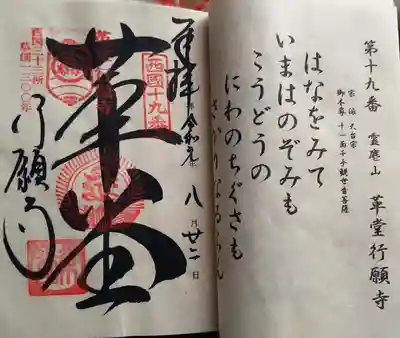 第十九番 霊麀山 革堂行願寺
宗派 天台宗
御本尊 千一面千手観世音菩薩
はなをみて
いまはのぞみも
こうどうの
にわのちぐさも
さかりなるらん
奉拝 令和元年 八月廿二日
西國十九番
革堂
行願寺
西国三十三所
草創一三〇〇年